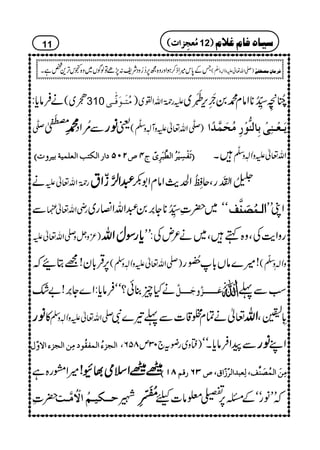 سیاہ فام غلام (12 مُعجزات) 11
فرمانِ مصطَفٰے (صلی اللہ تعالیٰ علیہ واٰلہٖ وسلم) جس کے پاس میرا ذکر ہوا اور وہ مجھ پر دُرُود شریف نہ پڑھے تو لوگوں میں وہ کنجوس ترین شخص ہے۔
چُنانچِہ سیِّدُنا امام محمد بن جَریر طَبَری علیہ رحمۃ اللہ القوی (مُتَوَفّٰی 310 ھجری) نے فرمایا:
یَعْنِیْ بِالنُّوْرِ مُحَمَّدًا (صلی اللہ تعالیٰ علیہ واٰلہٖ وسلم) یعنی نُور سے مُراد محمدِ مصطَفٰے صلی
اللہ تعالیٰ علیہ واٰلہٖ وسلم ہیں۔ (تَفْسِیرُ الطَّبَرِیّ ج۴ ص ۵۰۲ دار الکتب العلمیۃ بیروت)
جلیلُ القدر، حافِظُ الحدیث امام ابوبکر عبدُ الرَّزّاق رحمۃ اللہ تعالیٰ علیہ نے
اپنی ’’المُصَنَّف‘‘ میں حضرتِ سیِّدُنا جابر بن عبداللہ انصاری رضی اللہ تعالیٰ عنہما سے
روایت کی، وہ کہتے ہیں، میں نے عرض کی: ’’یا رسولَ اللہ (عزوجل و صلی اللہ تعالیٰ علیہ
واٰلہٖ وسلم)! میرے ماں باپ حُضور (صلی اللہ تعالیٰ علیہ واٰلہٖ وسلم) پر قربان! مجھے بتائیے کہ
سب سے پہلے اللہ عَزَّوَجَلَّ نے کیا چیز بنائی؟‘‘ فرمایا: اے جابر! بے شک
بالیقین، اللہ تعالیٰ نے تمام مخلوقات سے پہلے تیرے نبی صلی اللہ تعالیٰ علیہ واٰلہٖ وسلم کا نور
اپنے نور سے پیدا فرمایا۔‘‘ (فتاوٰی رضویہ ج۳۰ ص ۶۵۸، الجزءُ المفقُود مِنَ الجزء الاوّل
مِنَ المُصَنَّف، لِعبد الرّزاق، ص ۶۳ رقم ۱۸) میٹھے میٹھے اسلامی بھائیو! میرا مشورہ ہے
کہ ’’نور‘‘ کے مسئلہ پر تفصیلی معلومات کیلئے مُفَسِّرِ شہیر حکیمُ الاُمَّت حضرتِ